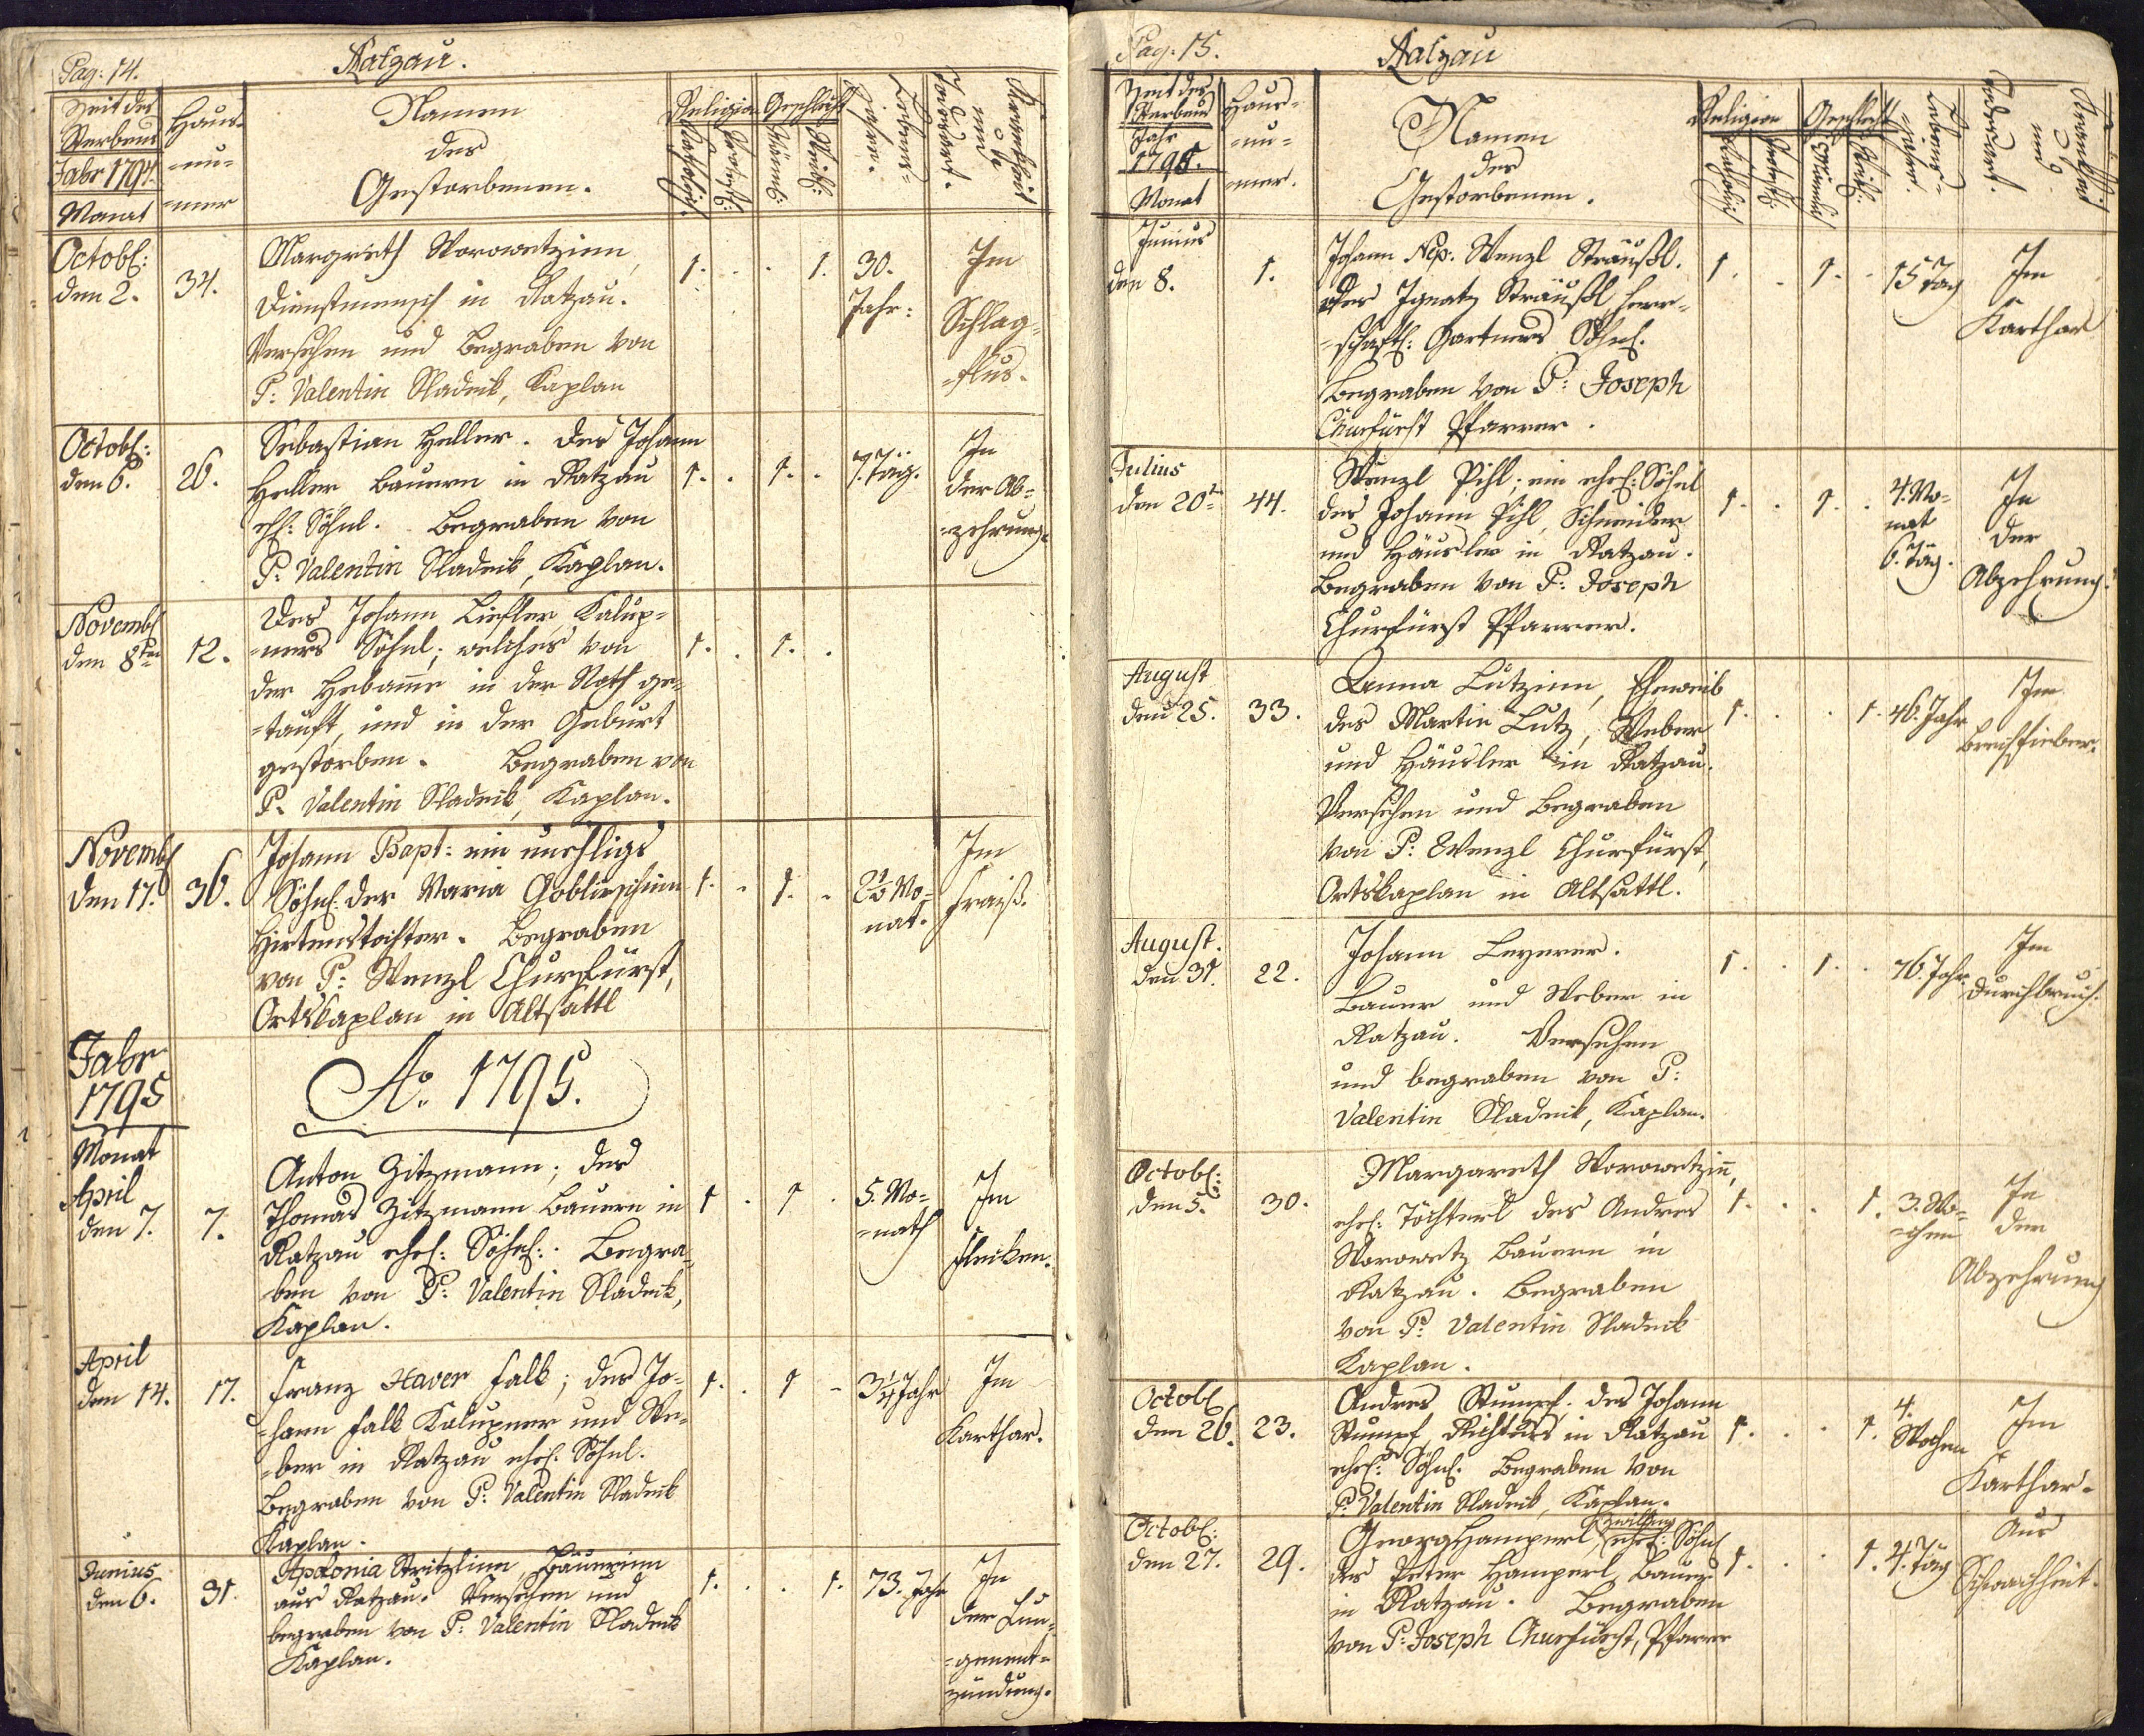 Pag: 14.
Ratzau.
Zeit des
Sterbens
Jahr 1794.
Monat
Haus-
=nu=
=mer
Namen
des
Gestorbenen.
Religion
Katholisch.
Protest:
Geschlecht
Männl:
Weibl:
Lebens=
Jahre.
Krankheit
und
Todesart.
Octobr:
den 2.
34.
Margreth Worowetzinn,
Dienstmensch in Ratzau.
Versehen und Begraben von
P: Valentin Sladeik, Kaplan
1. 1.
30.
Jahr:
Im
Schlag=
=flus.
Octobr:
den 6.
26.
Sebastian Heller. Des Johann
Heller Bauern in Ratzau
ehl: Söhnl. Begraben von
P: Valentin Sladeik, Kaplan.
1. 1.
7. Täg.
In
der Ab=
=zehrung.
Novembr
den 8ten
12.
Des Johann Liefler, Kalup=
=ners Söhnl; welches von
der Hebamme in der Noth ge=
=tauft, und in der Geburt
gestorben. Begraben von
P. Valentin Sladeik, Kaplan.
1. 1.
Novembr
den 17.
36.
Johann Bapt: ein unehligs
Söhnl. der Maria Goblirschinn
Hirtenstochter. Begraben
von P: Wenzl Churfürst,
Ortskaplan in Altsattl
1. 1.
2½ Mo=
nat.
Im
Fraiß.
Jahr
1795
Ao. 1795.
Monat
April
den 7.
7.
Anton Zitzmann; des
Thomas Zitzmann Bauern in
Ratzau ehel: Söhnl: Begra=
=ben von P: Valentin Sladeik,
Kaplan.
1 1
5. Mo=
=nath
Im
Flecken.
April
den 14.
17.
Franz Xaver Falb; des Jo=
=hann Falb Kalupner und We=
=ber in Ratzau ehel: Söhnl.
Begraben von P: Valentin Sladeik
Kaplan.
1. 1
3¼ Jahr
Im
Karthar.
Junius
den 6.
31.
Apolonia Stritzlinn, Bäuerinn
aus Ratzau. Versehen und
begraben von P: Valentin Sladeik
Kaplan.
1. 1.
73. Jahr
In
der Lun=
=genent=
zündung.
Pag: 15.
Ratzau
Zeit des
Sterbens
Jahr
1795.
Monat
Haus=
=nu=
=mer.
Namen
des
Gestorbenen.
Religion
Katholisch
Protest:
Geschlecht
Männl:
Weibl:
Lebens=
=jahre.
Krankheit
und
Todesart.
Junius
den 8.
1.
Johann Nep: Wenzl Sträußl.
Des Ignatz Sträußl, herr=
=schaftl: Gartners Söhnl.
Begraben von P: Joseph
Churfürst Pfarrer.
1. 1.
15 Tag
Im
Karthar
Julius
den 20t
44.
Wenzl Pihl; ein ehel: Söhnl
des Johann Pihl, Schneider
und Häusler in Ratzau.
Begraben von P: Joseph
Churfürst Pfarrer.
1. 1.
4. Mo=
nat
6. Täg.
In
der
Abzehrung.
August
den 25.
33.
Anna Lutzinn, Eheweib
des Martin Lutz, Weber
und Häusler in Ratzau.
Versehen und Begraben
von P: Wenzl Churfürst,
Ortskaplan in Altsattl.
1. 1.
46. Jahr
Im
August.
den 31.
22.
Johann Beyerer.
Bauer und Weber in
Ratzau. Versehen
und begraben von P:
Valentin Sladeik, Kaplan.
1. 1.
76. Jahr.
Im
Durchbruch.
Octobr:
den 5.
30.
Margareth Worowetzinn,
ehel: Töchterl des Andres
Worowetz Bauern in
Ratzau. Begraben
von P: Valentin Sladeik
Kaplan.
1. 1.
3. Wo=
=chen
In
der
Abzehrung
Octobr
den 26.
23.
Andres Stumpf. des Johann
Stumpf, Richters in Ratzau
ehel: Söhnl. Begraben von
P: Valentin Sladeik, Kaplan.
1. 1.
4.
Wochen
Im
Karthar.
Octobr:
den 27.
29.
Georg Hamperl, Zwilling ehel: Söhnl
des Peter Hamperl, Bauers
in Ratzau. Begraben
von P: Joseph Churfürst, Pfarrer
1. 1.
4. Täg
Aus
Schwachheit.